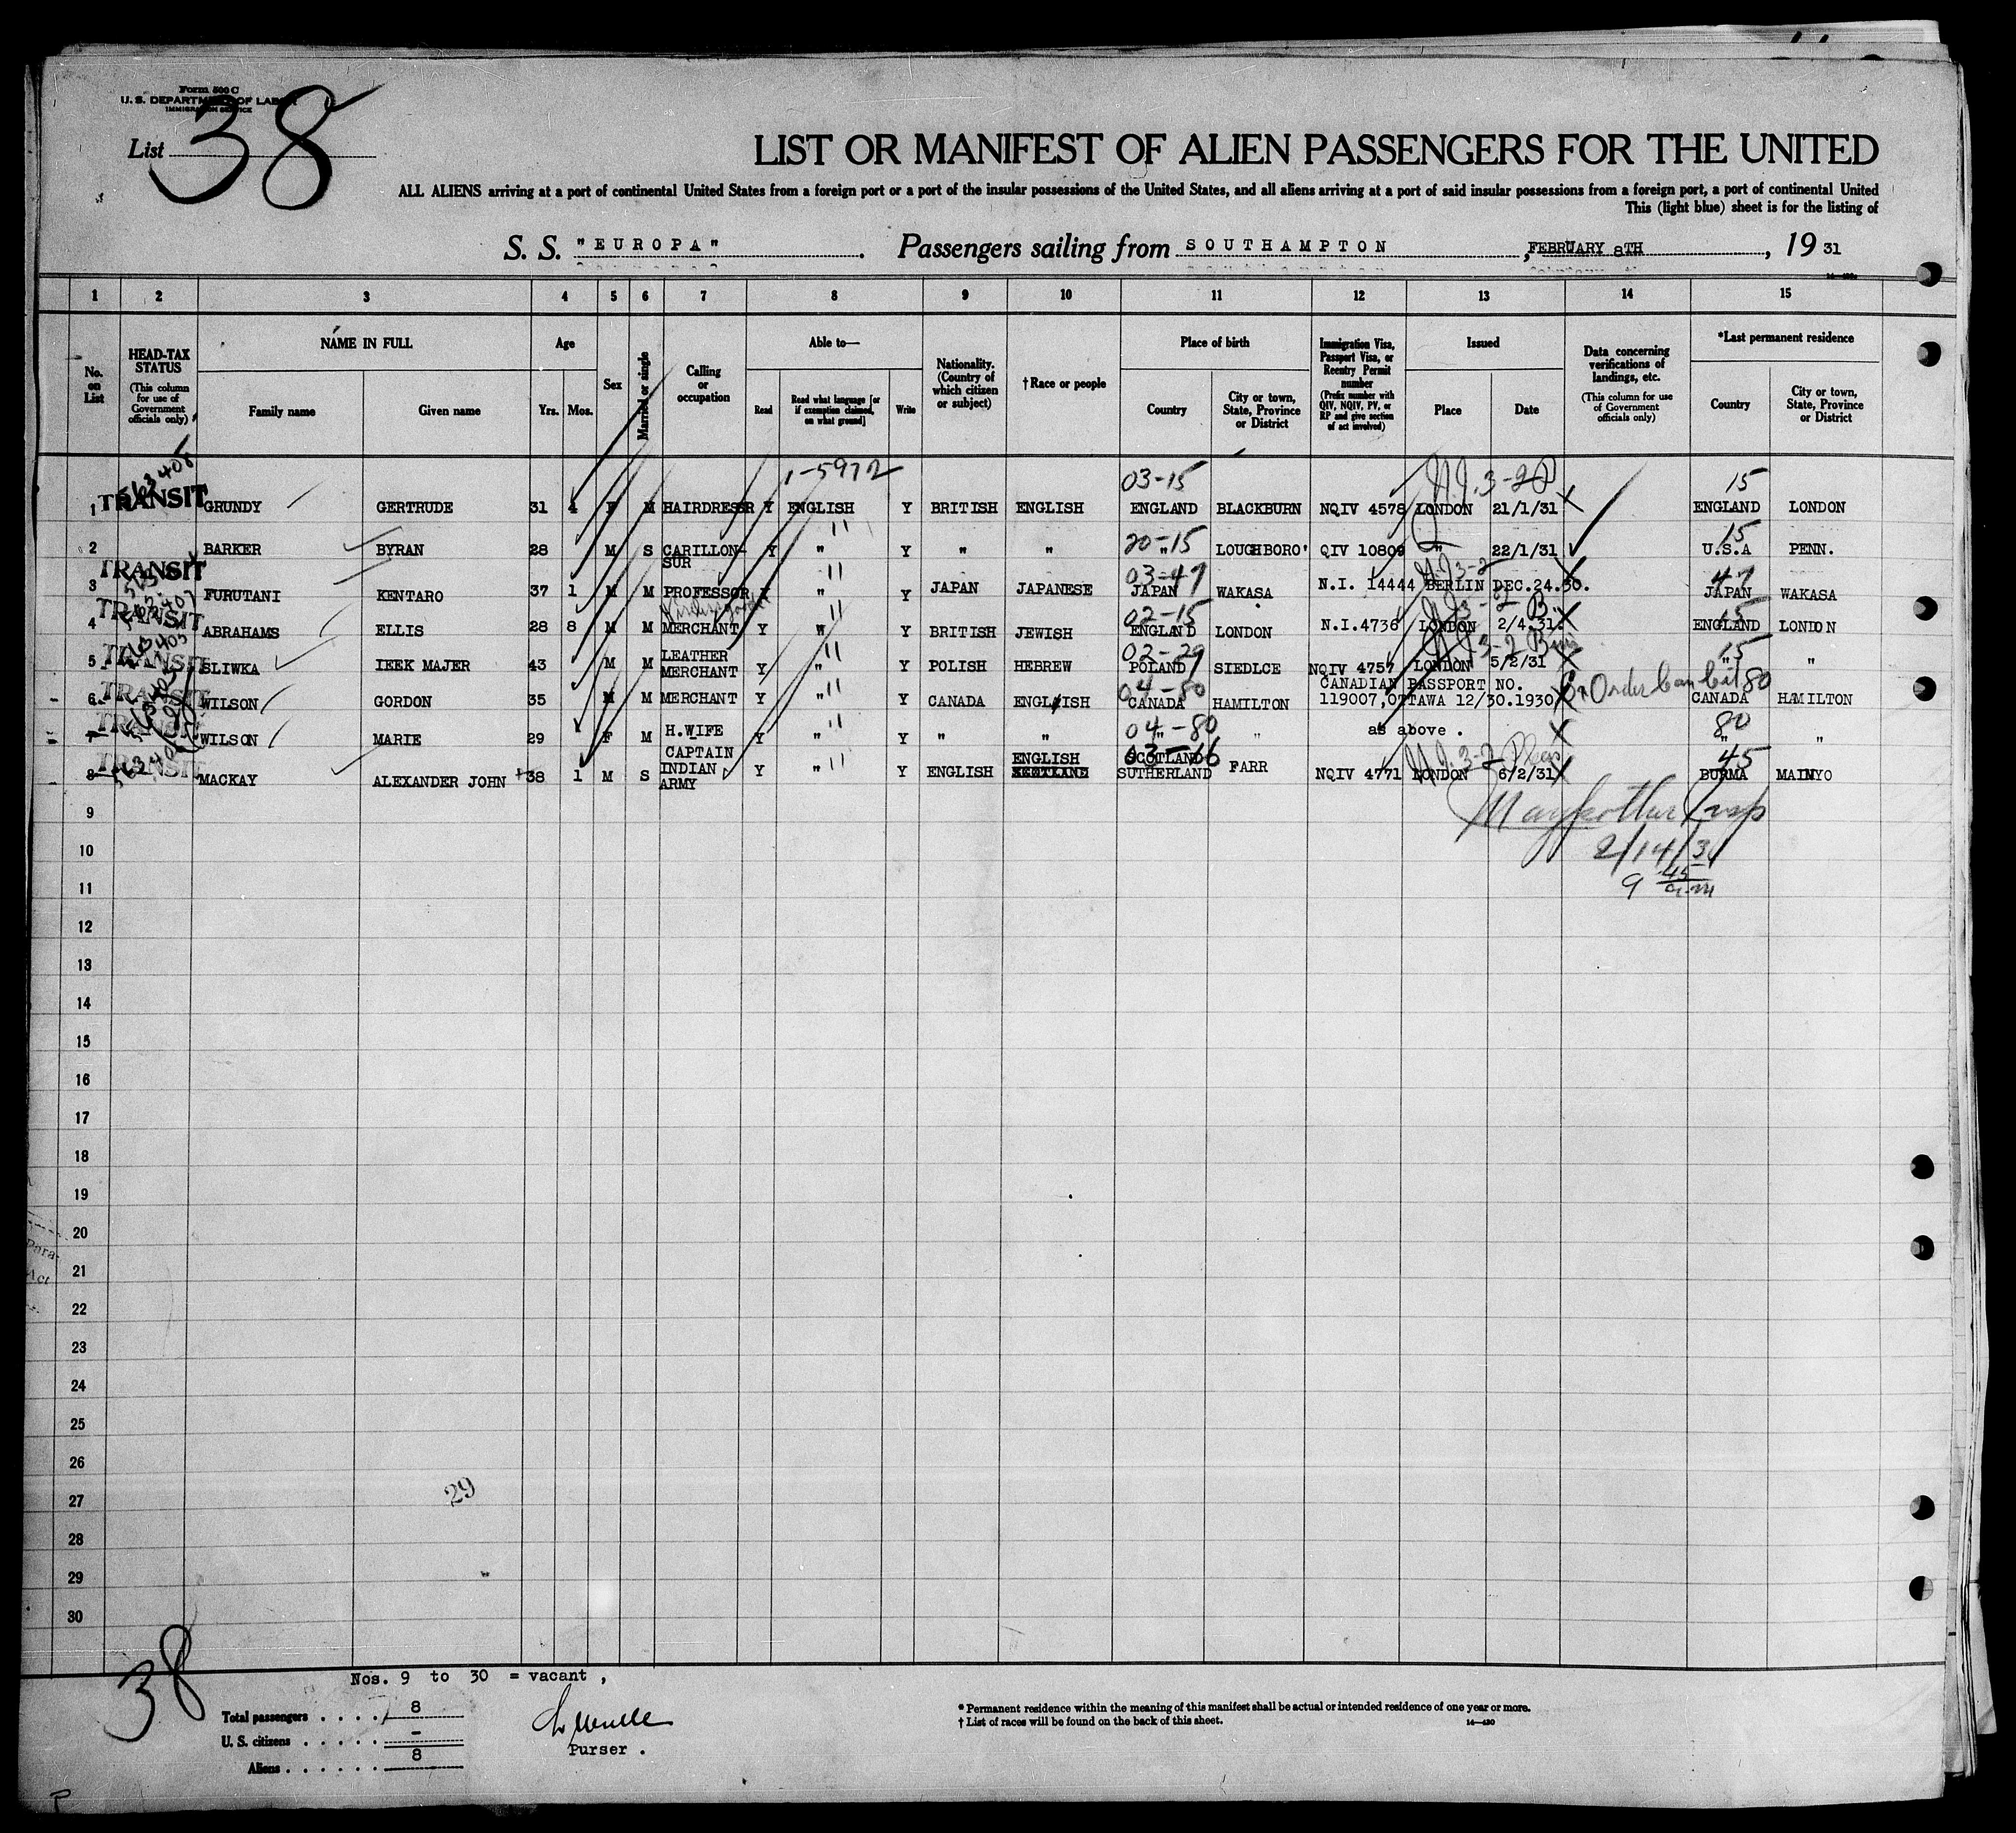 Form 500 C
U. S. DEPARTMENT OF LABOR
IMMIGRATION SERVICE
List 38
LIST OR MANIFEST OF ALIEN PASSENGERS FOR THE UNITED
ALL ALIENS arriving at a port of continental United States from a foreign port or a port of the insular possessions of the United States, and all aliens arriving at a port of said insular possessions from a foreign port, a port of continental United
This (light blue) sheet is for the listing of
S. S. "EUROPA". Passengers sailing from SOUTHAMPTON, FEBRUARY 8TH, 1931
1 2 3 4 5 6 7 8 9 10 11 12 13 14 15
No. on List
HEAD-TAX STATUS (This column for use of Government officials only)
NAME IN FULL
Family name Given name
Age
Yrs. Mos.
Sex
Married or single
Calling or occupation
Able to—
Read Read what language [or if exemption claimed, on what ground] Write
Nationality. (Country of which citizen or subject)
†Race or people
Place of birth
Country City or town, State, Province or District
Immigration Visa, Passport Visa, or Reentry Permit number (Prefix number with QIV, NQIV, PV, or RP and give section of act involved)
Issued
Place Date
Data concerning verifications of landings, etc. (This column for use of Government officials only)
*Last permanent residence
Country City or town, State, Province or District
1-5972 03-15 15
1 TRANSIT GRUNDY GERTRUDE 31 4 F M HAIRDRESSR Y ENGLISH Y BRITISH ENGLISH ENGLAND BLACKBURN NQIV 4578 LONDON 21/1/31 ENGLAND LONDON
20-15 15
2 BARKER BYRAN 28 M S CARILLON-SUR Y " Y " " " LOUGHBORO' QIV 10809 " 22/1/31 U.S.A PENN.
03-47 47
3 TRANSIT FURUTANI KENTARO 37 1 M M PROFESSOR Y " Y JAPAN JAPANESE JAPAN WAKASA N.I. 14444 BERLIN DEC.24.30. JAPAN WAKASA
02-15 15
4 TRANSIT ABRAHAMS ELLIS 28 8 M M MERCHANT Y " Y BRITISH JEWISH ENGLAND LONDON N.I.4736 LONDON 2/4.31. ENGLAND LONDON
02-29 15
5 TRANSIT SLIWKA IEEK MAJER 43 M M LEATHER MERCHANT Y " Y POLISH HEBREW POLAND SIEDLCE NQIV 4757 LONDON 5/2/31 " "
04-80 80
6 TRANSIT WILSON GORDON 35 M M MERCHANT Y " Y CANADA ENGLISH CANADA HAMILTON CANADIAN PASSPORT NO. 119007,OTTAWA 12/30.1930 CANADA HAMILTON
04-80 80
7 TRANSIT WILSON MARIE 29 F M H.WIFE Y " Y " " " " as above . " "
03-16 45
8 TRANSIT MACKAY ALEXANDER JOHN 38 1 M S CAPTAIN INDIAN ARMY Y " Y ENGLISH ENGLISH SCOTLAND SUTHERLAND FARR NQIV 4771 LONDON 6/2/31 BURMA MAINYO
2/14/31
9 45 a-m
9
10
11
12
13
14
15
16
17
18
19
20
21
22
23
24
25
26
27
28
29
30
29
38
Nos. 9 to 30 = vacant ,
Total passengers . . . . 8
U. S. citizens . . . . . –
Aliens . . . . . . 8
Purser .
* Permanent residence within the meaning of this manifest shall be actual or intended residence of one year or more.
† List of races will be found on the back of this sheet.
14—430